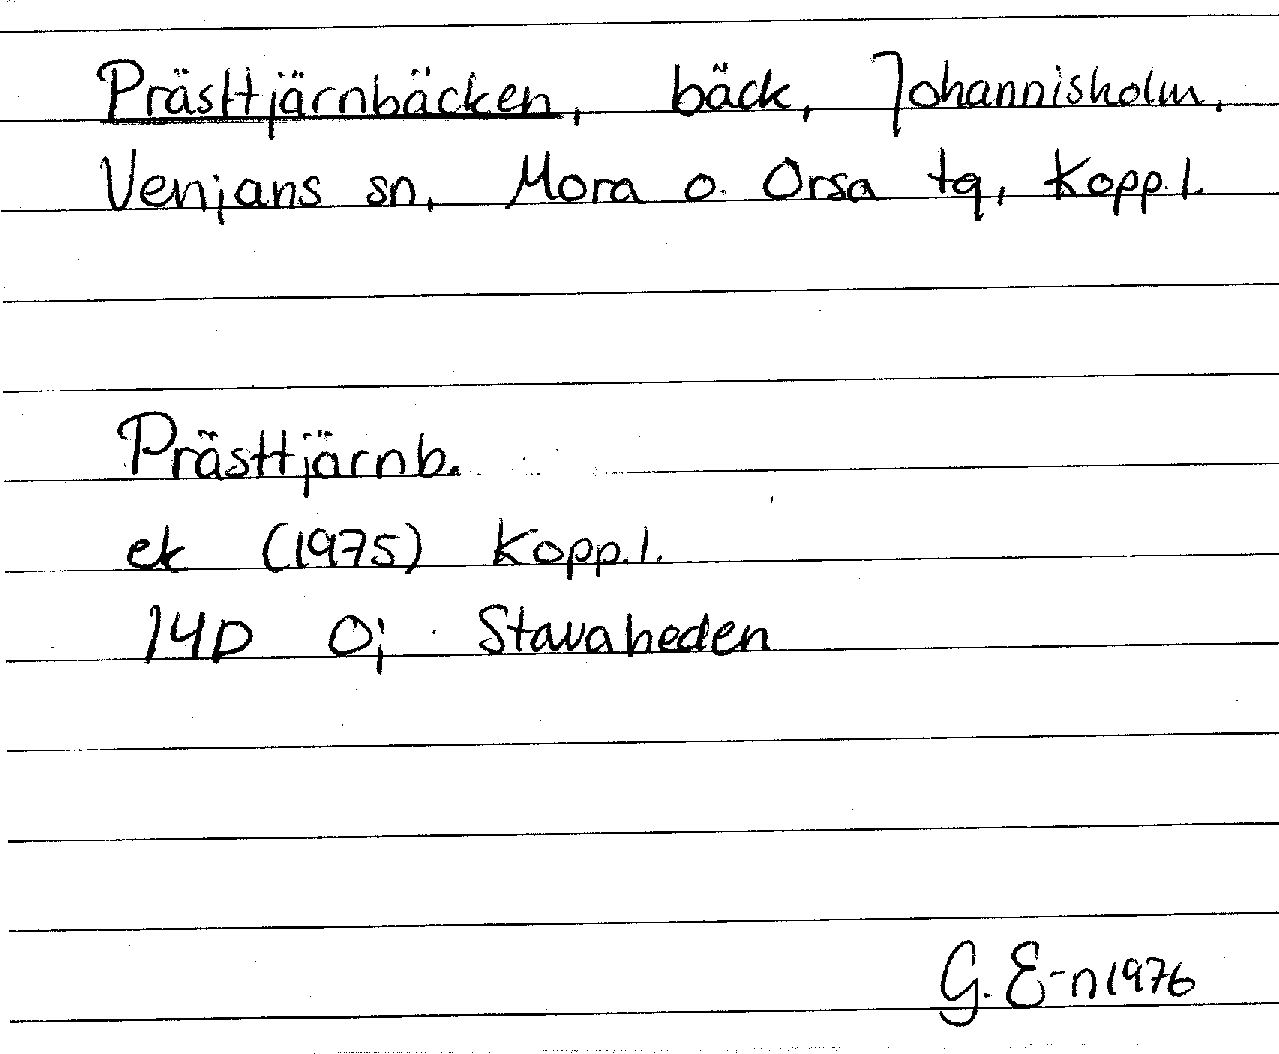 Prästtjärnbäcken, bäck, Johannisholm,
Venjans sn, Mora o. Orsa tg, Kopp.l.
Prästtjärnb.
ek (1975) Kopp.l.
14D 0j Stavaheden
G. E-n 1976